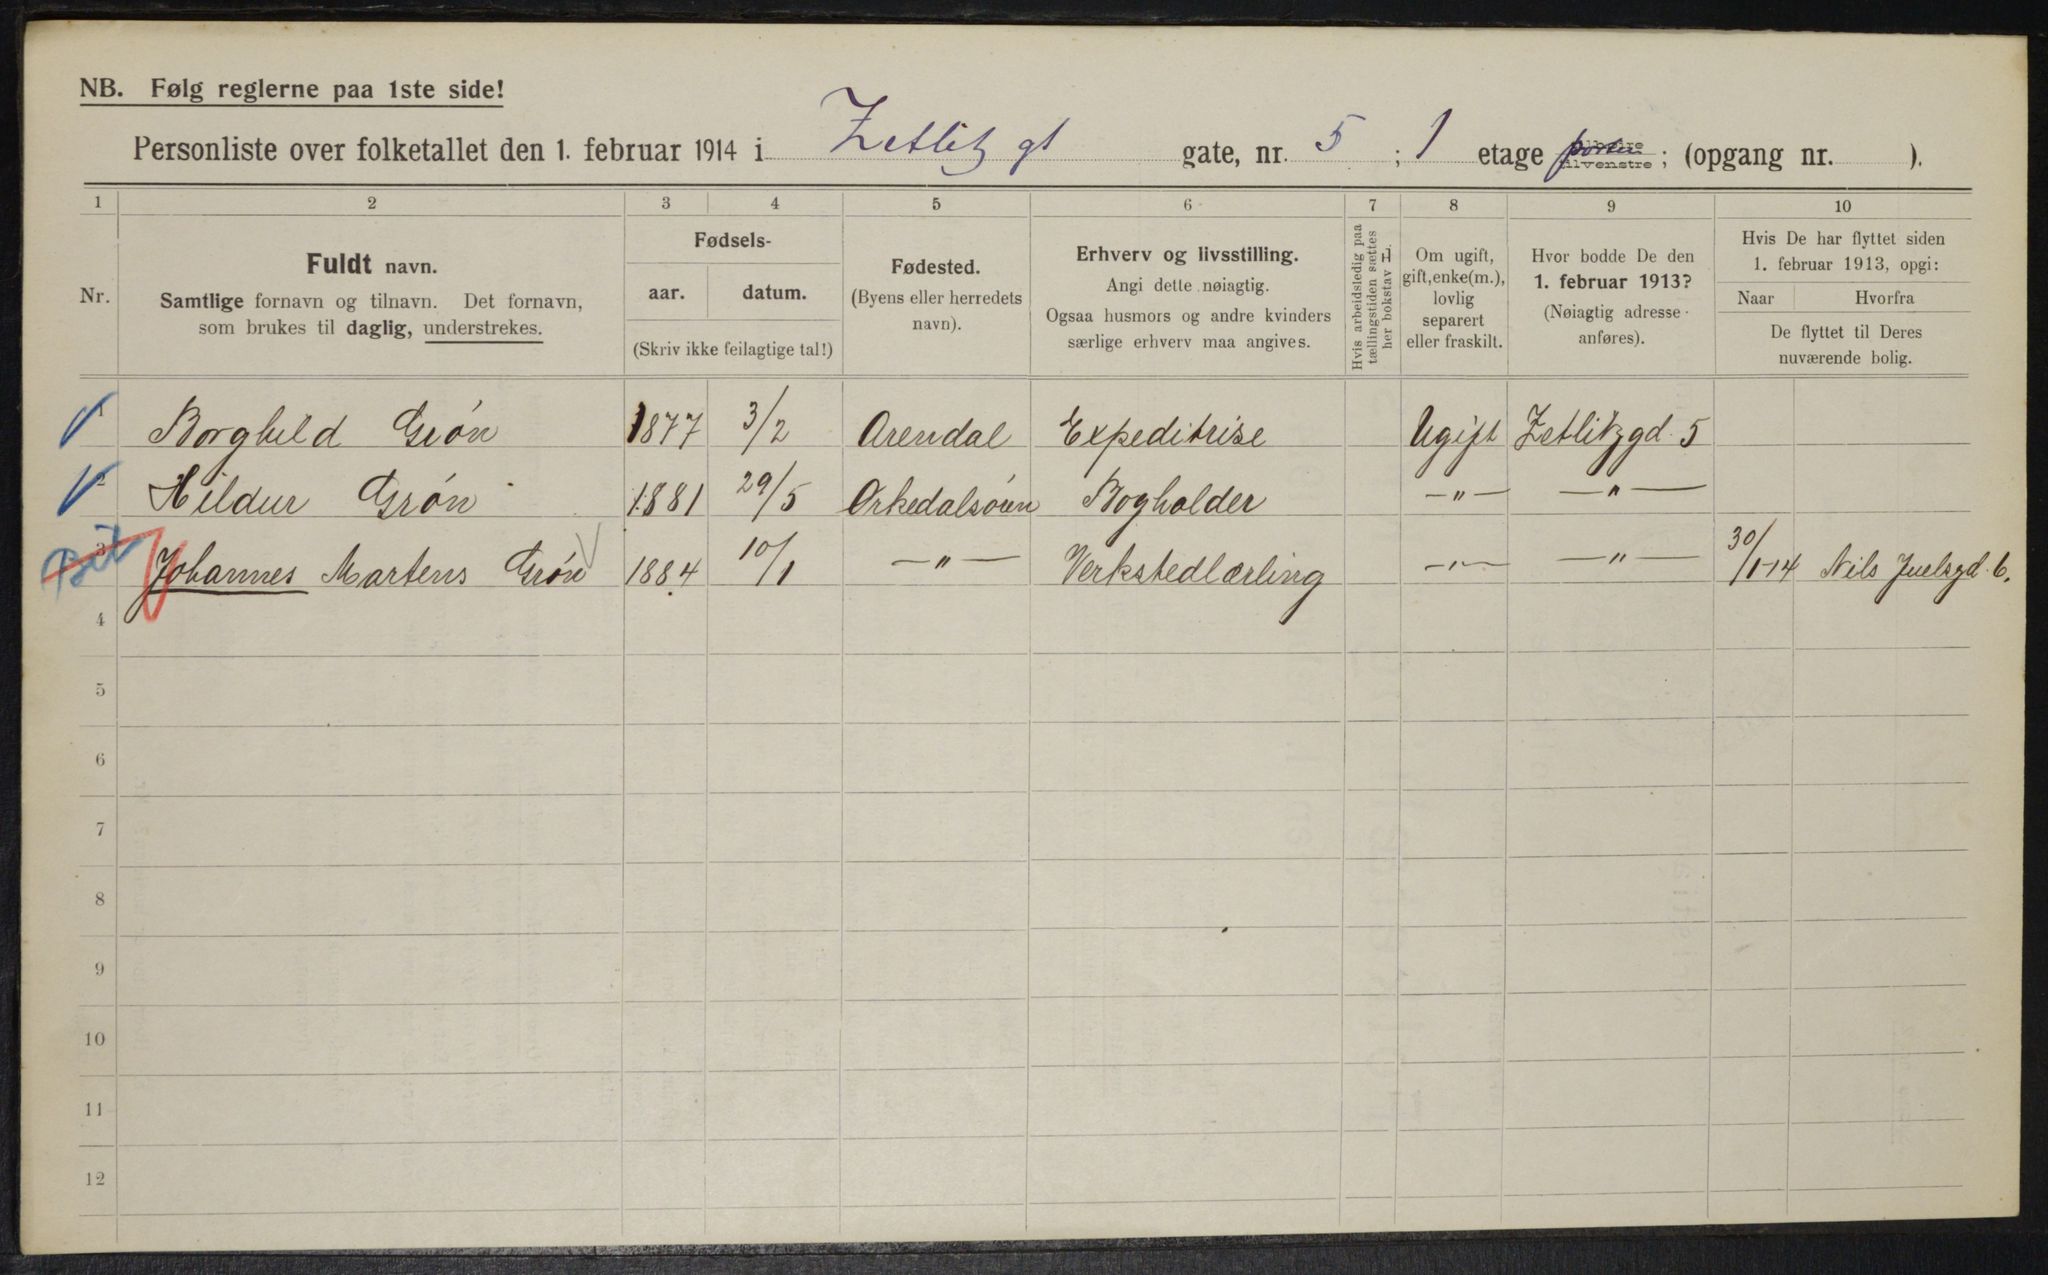 NB. Følg reglerne paa 1ste side!
Personliste over folketallet den 1. februar 1914 i Zetlitz gt gate, nr. 5 ; 1 etage ; (opgang nr. ).
1 2 3 4 5 6 7 8 9 10
Nr.
Fuldt navn.
Samtlige fornavn og tilnavn. Det fornavn,
som brukes til daglig, understrekes.
Fødsels-
aar. datum.
(Skriv ikke feilagtige tal!)
Fødested.
(Byens eller herredets
navn).
Erhverv og livsstilling.
Angi dette nøiagtig.
Ogsaa husmors og andre kvinders
særlige erhverv maa angives.
Hvis arbeidsledig paa
tællingstiden sættes
her bokstav L.
Om ugift,
gift, enke(m.),
lovlig
separert
eller fraskilt.
Hvor bodde De den
1. februar 1913?
(Nøiagtig adresse
anføres).
Hvis De har flyttet siden
1. februar 1913, opgi:
Naar Hvorfra
De flyttet til Deres
nuværende bolig.
1 Borghild Grøn 1877 3/2 Arendal Expeditrise Ugift Zetlitzgd. 5
2 Hildur Grøn 1881 29/5 Orkedalsøren Bogholder —"— —"—
3 Johannes Martens Grøn 1884 10/1 —"— Verkstedlærling —"— —"— 30/1-14 Nils Juelsgd. 6.
4
5
6
7
8
9
10
11
12